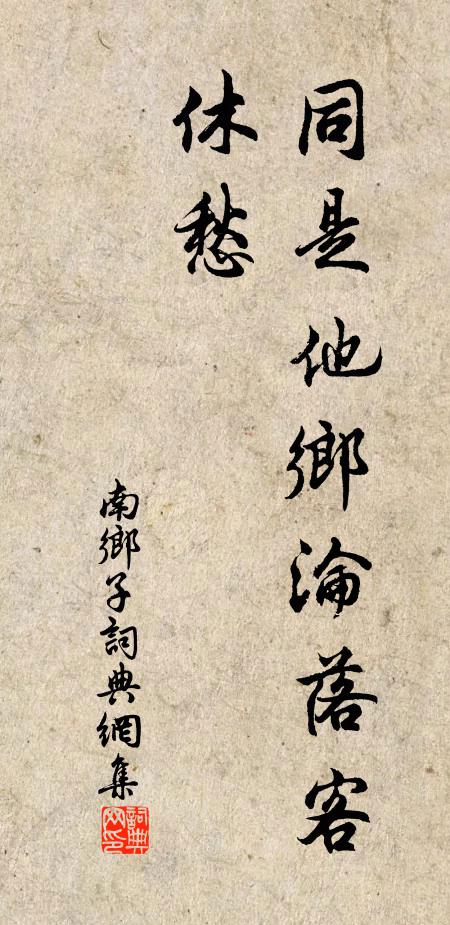 同是他鄉淪落客
休愁
南鄉子詞典網集
詞典网印